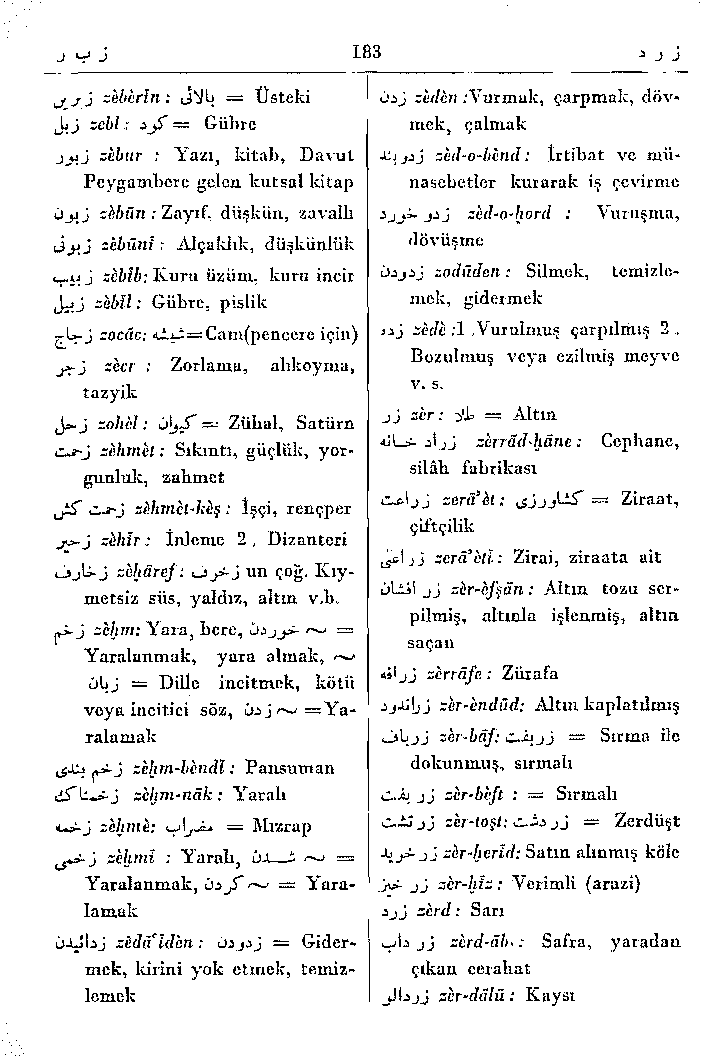 ز ب ر 183 ز ر د
زبرین zèbèrîn : بالائی = Üsteki
زبل zebl : کود = Gübre
زبور zèbur : Yazı, kitab, Davut
Peygambere gelen kutsal kitap
زبون zèbūn : Zayıf, düşkün, zavallı
زبونی zèbūnî : Alçaklık, düşkünlük
زبیب zèbîb: Kuru üzüm, kuru incir
زبیل zèbîl : Gübre, pislik
زجاج zocāc: شیشه = Cam(pencere için)
زجر zècr : Zorlama, alıkoyma,
tazyik
زحل zohèl : کیوان = Zühal, Satürn
زحمت zèhmèt : Sıkıntı, güçlük, yor-
gunluk, zahmet
زحمت کش zèhmèt-kèş : İşçi, rençper
زحیر zèhîr : İnleme 2, Dizanteri
زخارف zèḫāref : زخرف un çoğ. Kıy-
metsiz süs, yaldız, altın v.b.
زخم zèḫm: Yara, bere, خوردن ~ =
Yaralanmak, yara almak, ~
زبان = Dille incitmek, kötü
veya incitici söz, زدن ~ =Ya-
ralamak
زخم بندی zèḫm-bèndî : Pansuman
زخمناک zèḫm-nāk : Yaralı
زخمه zèḫmè: مضراب = Mızrap
زخمی zèḫmî : Yaralı, شدن ~ =
Yaralanmak, کردن ~ = Yara-
lamak
زدائیدن zèdā'îdèn : زدودن = Gider-
mek, kirini yok etmek, temiz-
lemek
زدن zèdèn :Vurmak, çarpmak, döv-
mek, çalmak
زدوبند zèd-o-bènd : İrtibat ve mü-
nasebetler kurarak iş çevirme
زدو خورد zèd-o-ḫord : Vuruşma,
dövüşme
زدودن zodūden : Silmek, temizle-
mek, gidermek
زده zèdè :1 .Vurulmuş çarpılmış 2 .
Bozulmuş veya ezilmiş meyve
v. s.
زر zèr : طلا = Altın
زراد خانه zèrrād-ḫāne : Cephane,
silâh fabrikası
زراعت zerā'èt : کشاورزی = Ziraat,
çiftçilik
زراعتی zerā'ètî : Zirai, ziraata ait
زر افشان zèr-èfşān : Altın tozu ser-
pilmiş, altınla işlenmiş, altın
saçan
زرافه zèrrāfe : Zürafa
زراندود zèr-èndūd: Altın kaplatılmış
زرباف zèr-bāf: زربفت = Sırma ile
dokunmuş, sırmalı
زر بفت zèr-bèft : = Sırmalı
زر تشت zèr-toşt: زردشت = Zerdüşt
زر خرید zèr-ḫerîd: Satın alınmış köle
زر خیز zèr-ḫîz : Verimli (arazi)
زرد zèrd : Sarı
زر داب zèrd-āb : Safra, yaradan
çıkan cerahat
زردالو zèr-dālū : Kaysı